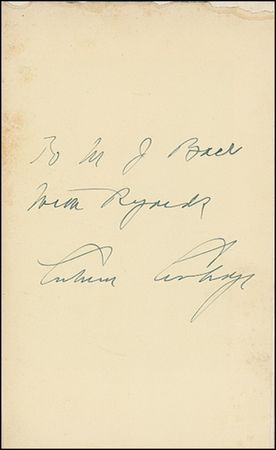 To M J Bach
With Regards
Calvin Coolidge